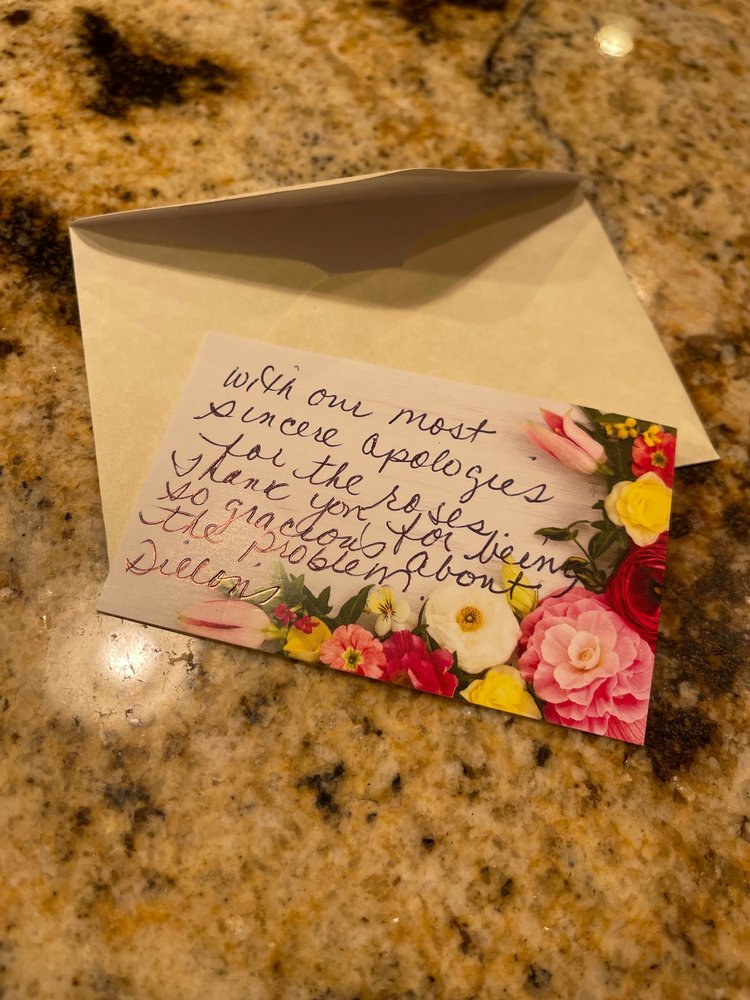 with our most
sincere apologies
for the roses.
Thank you for being
so gracious about
the problem.
Dillons